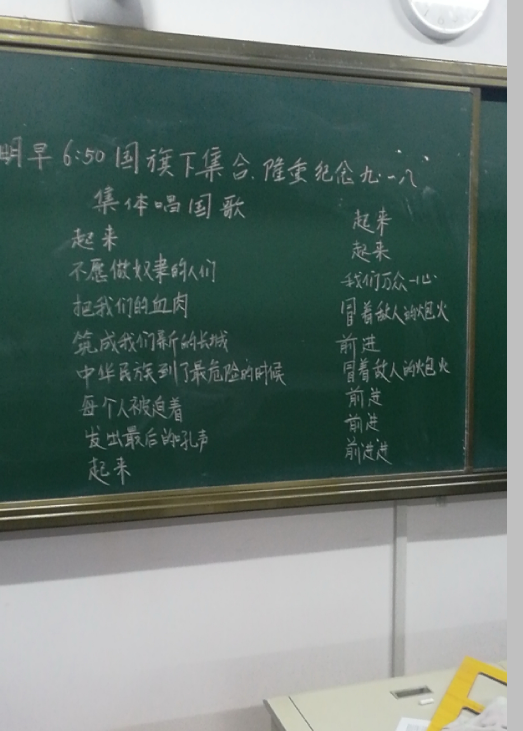 明早6:50国旗下集合.隆重纪念九·一八
集体唱国歌
起来
不愿做奴隶的人们
把我们的血肉
筑成我们新的长城
中华民族到了最危险的时候
每个人被迫着
发出最后的吼声
起来
起来
起来
我们万众一心
冒着敌人的炮火
前进
冒着敌人的炮火
前进
前进
前进进